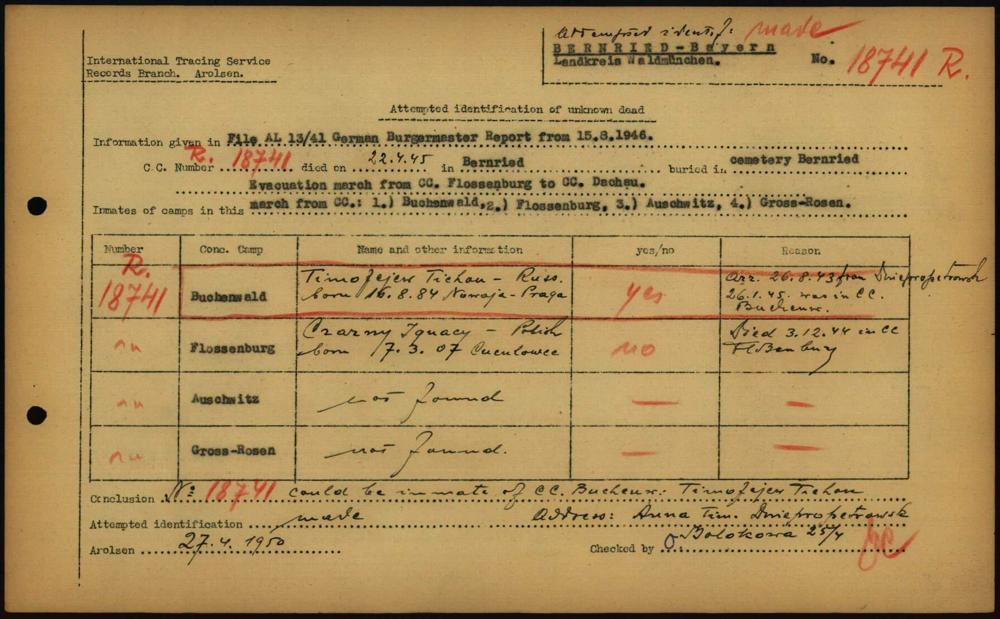 Attempted identif: made
BERNRIED-Bayern
Landkreis Waldmünchen.
No. 18741 R.
International Tracing Service
Records Branch. Arolsen.
Attempted identification of unknown dead
Information given in File AL 13/41 German Burgermaster Report from 15.8.1946.
C.C. Number R. 18741 died on 22.4.45 in Bernried buried in cemetery Bernried
Evacuation march from CC. Flossenburg to CC. Dachau.
Inmates of camps in this march from CC.: 1.) Buchenwald, 2.) Flossenburg, 3.) Auschwitz, 4.) Gross-Rosen.
Number Conc. Camp Name and other information yes/no Reason
R. 18741 Buchenwald Timofejew Tichon - Russ. born 16.8.84 Nowaja-Praga yes Arr. 26.8.43 from Dniepropetrowsk 26.1.45. was in CC. Buchenw.
" " Flossenburg Czarny Ignacy - Polish born 17.3.07 Cuculowce no Died 3.12.44 in CC Floßenburg
" " Auschwitz not found — —
" " Gross-Rosen not found. — —
Conclusion No: 18741 could be inmate of CC. Buchenw. Timofejew Tichon
Attempted identification made Address: Anna Tim. Dniepropetrowsk
Bolokowa 25/4
Arolsen 27.4.1950 Checked by